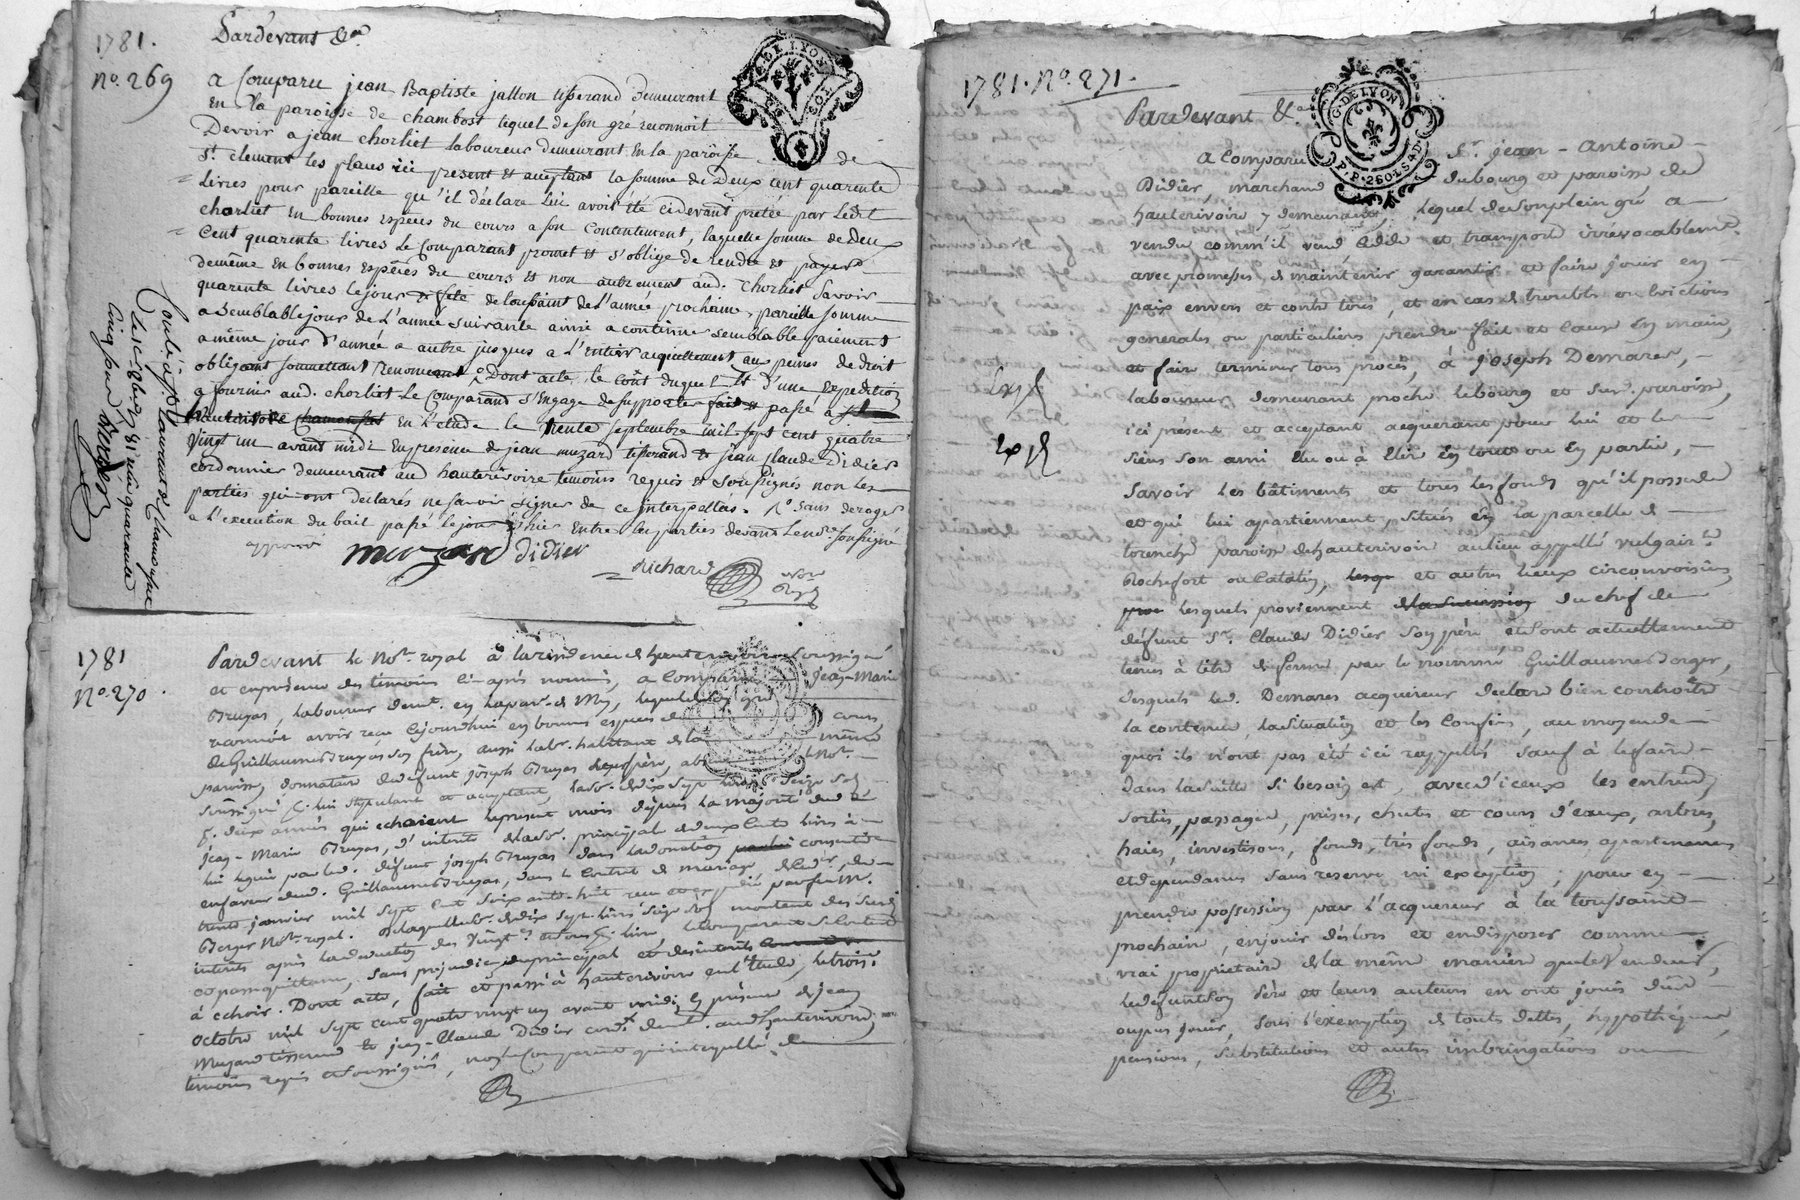 1781.
N.o 269
Pardevant &a
G. DE LYON
a Comparu jean Baptiste jallon tisserand demeurant
En la paroisse de chambost lequel de son gré reconnoit
Devoir a jean chorliet laboureur demeurant En la paroisse de
St. clement les places ici present et acceptant la somme de Deux cent quarente
Livres pour pareille qu'il déclare lui avoir été cidevant pretée par Ledit
chorliet En bonnes espéces du cours a son contentement, laquelle somme de deux
Cent quarente livres Le Comparant promet et s'oblige de rendre et payer
demême En bonnes Espéces de cours et non autrement aud. chorliet Savoir
quarente livres lejour et fête de toussaint de l'année prochaine, pareille somme
a Semblable jour de l'année suivante ainsi a continuer semblable paiement
a même jour d'année a autre jusques a l'entier acquittement aux peines de droit
obligeant soumettant Renonceant Dont acte, le coût duquel et d'une Expedition
a fournir aud. chorliet Le Comparand s'engage de supporter fait et passé à
hauterivoire En l'étude le trente Septembre mil sept cent quatre
Vingt un avant midi En presence de jean muzard tisserand et jean claude Didier
cordonnier demeurant aud hauterivoire temoins requis et soussignés non les
parties qui ont declarés ne savoir signer de ce interpellés. Sans deroger
a l'execution du bail passé lejour d'hier Entre les parties devant Le no.re soussigné
approuvé
muzard didier
Richard
Contl. à St. Laurent de Chamousset
cinq sous
Berger
1781
N.o 270.
Pardevant le Not. royal à la residence de hauterivoire Soussigné
et en présence des témoins ci-après nommés, a Comparu jean-Marie
Bruyas, laboureur demt. en la par. de
reconnoit avoir reçu cejourd'hui en bonnes espèces de cours,
de Guillaume Bruyas son frère, aussi labr. habitant de la même
paroisse, donnataire de défunt joseph Bruyas
soussigné p. lui stipulant et acceptant, la so. de dix sept livres seize sols
p. deux années qui echoient le present mois depuis la majorité dud.
jean-Marie Bruyas, d'interets de la so. principale de deux cents livres à
lui léguée par led. défunt joseph Bruyas dans la donation consentie
en faveur dud. Guillaume Bruyas, dans le contrat de mariage
trente janvier mil sept cent soixante-huit reçu et expédié par feu Me.
Berger Not. royal. De laquelle so. de dix sept livres seize sols montant desdits
interets après la deduction des vingt.es le comparant se contente
et passe quittance, sans préjudice du principal et des interets
à echoir. Dont acte, fait et passé à hauterivoire en l'étude, le trois.
octobre mil sept cent quatre vingt un avant midi En présence de jean
Muzard tisserand et jean-Claude Didier cord. demt. aud. hauterivoire
témoins requis et soussignés, non le Comparant qui interpellé de
1781. N.o 271.
Pardevant &a.
G. DE LYON
P.P. 2601
a Comparu Sr. jean-antoine
Didier, marchand dubourg et paroisse de
hauterivoire y demeurant, lequel de son plein gré a
vendu comm'il vend cède et transporte irrévocablemt.
avec promesses de maintenir garantir et faire jouir en
paix envers et contre tous, et en cas de troubles ou évictions
generales ou particulières prendre fait et cause En main,
et faire terminer tous procès, à joseph Demares,
laboureur demeurant proche le bourg et sud. paroisse,
ici présent et acceptant acquerant pour lui et les
siens son ami élu ou à élire En tout ou En partie,
Savoir les bâtiments et tous les fonds qu'il possede
et qui lui apartiennent, situés En la parcelle de
tranche paroisse de hauterivoire au lieu appellé vulgairt.
Rochefort ou Catatin, et autres lieux circonvoisins
lesquels proviennent de la succession du chef de
défunt Sr. Claude Didier son père et sont actuellement
tenus à titre de ferme par le nommé Guillaume Berger,
desquels led. Demares acquereur déclare bien connoitre
la contenue, la situation et les Confins, au moyen de
quoi ils n'ont pas été ici rappellés sauf à le faire
dans la suitte si besoin est, avec d'iceux les entrées,
sorties, passages, prises, chutes et cours d'eaux, arbres,
haies, investisons, fonds, très fonds, aisances apartenances
et dependances sans reserve ni exception; pour en
prendre possession par l'acquereur à la toussaint
prochaine, en jouir dèslors et en disposer comme
vrai propriétaire de la même manière que le Vendeur,
le défunt son père et leurs auteurs en ont joui dû
ou pu jouir, sous l'exemption de toutes dettes, hypothèques,
pensions, substitutions et autres imbringations ou